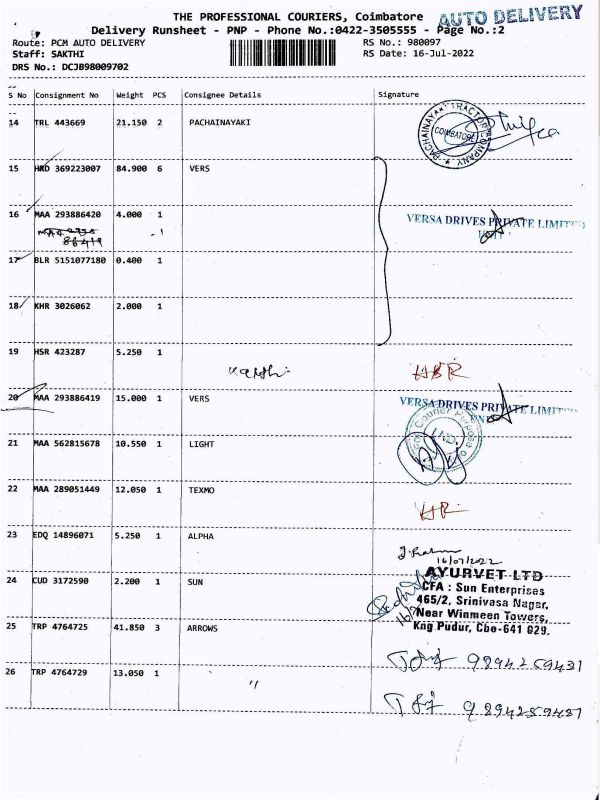 THE PROFESSIONAL COURIERS, Coimbatore
AUTO DELIVERY
Delivery Runsheet - PNP - Phone No.:0422-3505555 - Page No.:2
Route: PCM AUTO DELIVERY RS No.: 980097
Staff: SAKTHI RS Date: 16-Jul-2022
DRS No.: DCJB98009702
S No Consignment No Weight PCS Consignee Details Signature
14 TRL 443669 21.150 2 PACHAINAYAKI
PACHAINAYAKI TRACTOR COMPANY COIMBATORE
15 HRD 369223007 84.900 6 VERS
16 MAA 293886420 4.000 1
VERSA DRIVES PRIVATE LIMITED
86419 1
17 BLR 5151077180 0.400 1
18 KHR 3026062 2.000 1
19 HSR 423287 5.250 1
HBR
20 MAA 293886419 15.000 1 VERS
VERSA DRIVES PRIVATE LIMITED
UNIT
21 MAA 562815678 10.550 1 LIGHT
22 MAA 289051449 12.050 1 TEXMO
HR
23 EDQ 14896071 5.250 1 ALPHA
16/07/2022
24 CUD 3172590 2.200 1 SUN
AYURVET LTD
CFA : Sun Enterprises
465/2, Srinivasa Nagar,
Near Winmeen Towers,
Kng Pudur, Cbe-641 029.
25 TRP 4764725 41.850 3 ARROWS
9894259431
26 TRP 4764729 13.050 1 〃
9894259431